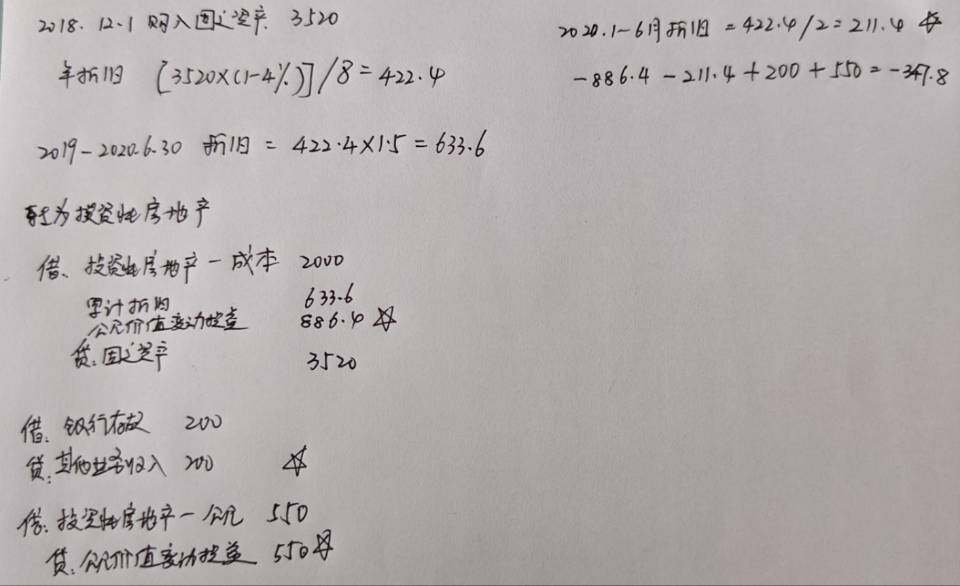 2018.12.1 购入固定资产 3520
年折旧 [3520×(1-4%)]/8=422.4
2019-2020.6.30 折旧 = 422.4×1.5=633.6
转为投资性房地产
借、投资性房地产-成本 2000
累计折旧 633.6
公允价值变动损益 886.4 ☆
贷:固定资产 3520
借、银行存款 200
贷:其他业务收入 200 ☆
借:投资性房地产-公允 550
贷:公允价值变动损益 550☆
2020.1-6月折旧=422.4/2=211.4 ☆
-886.4-211.4+200+550=-347.8